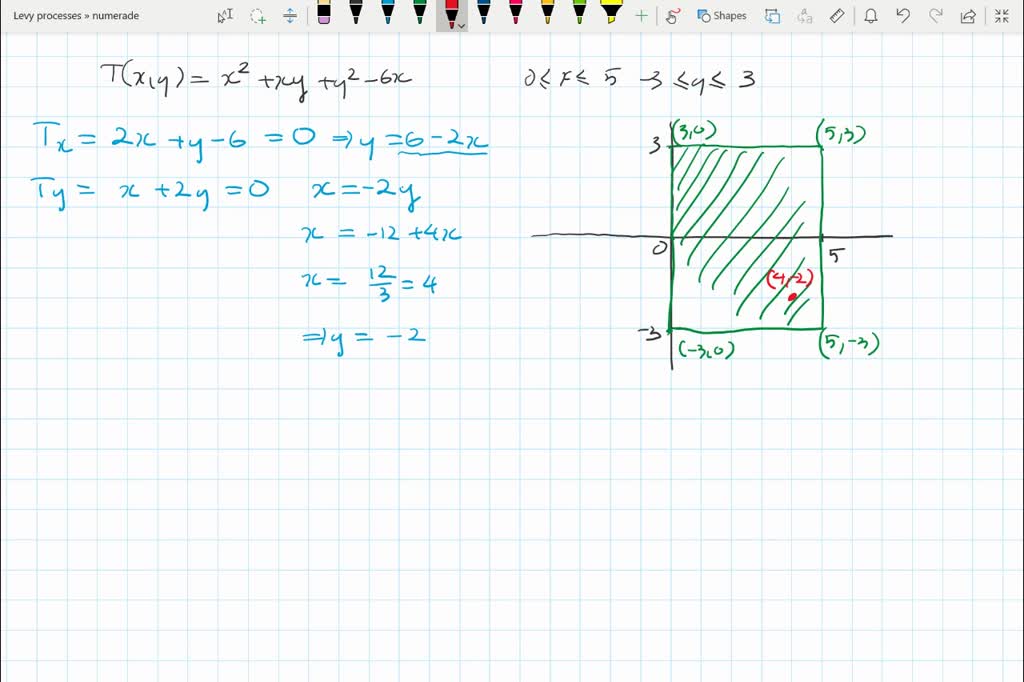 Levy processes » numerade
Shapes
T(x,y) = x² + xy + y² - 6x
0 ≤ x ≤ 5 -3 ≤ y ≤ 3
Tx = 2x + y - 6 = 0 ⇒ y = 6 - 2x
Ty = x + 2y = 0 x = -2y
x = -12 + 4x
x = 12/3 = 4
⇒ y = -2
(3,0) (5,3)
3
0 5
(4,-2)
-3
(-3,0) (5,-3)